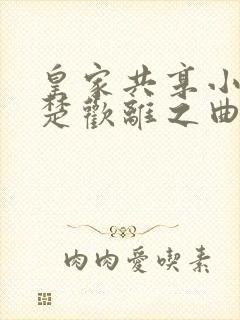 皇家共享小
楚歡離之曲
肉肉愛喫素